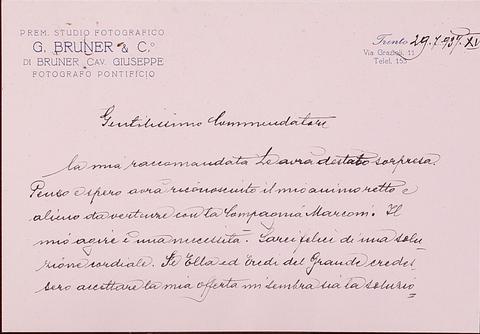 PREM. STUDIO FOTOGRAFICO
G. BRUNER & C.º
DI BRUNER CAV. GIUSEPPE
FOTOGRAFO PONTIFICIO
Trento 29.7.937. XV
Via Grazioli, 11
Telef. 153
Gentilissimo Commendatore
la mia raccomandata Le avrà destato sorpresa.
Penso e spero avrà riconosciuto il mio animo retto e
alieno da vertenze con la Compagnia Marconi. Il
mio agire è una necessità. Sarei felice di una solu-
zione cordiale. Se Ella ed Eredi del Grande credes
sero accettare la mia offerta mi sembra sia la soluzio